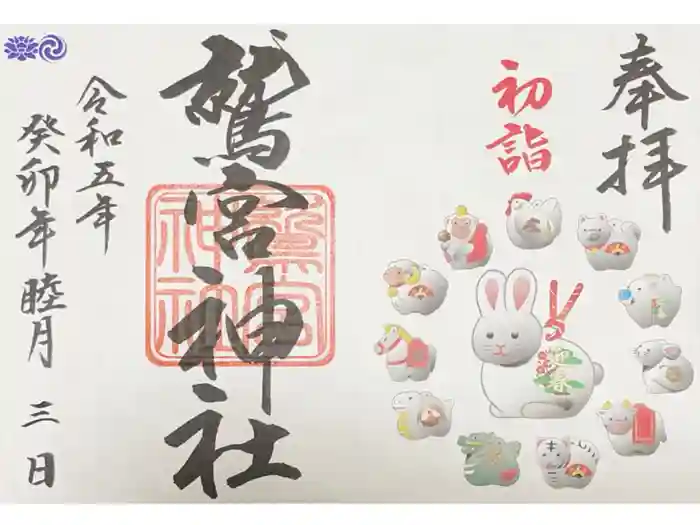 奉拝
初詣
迎春
鷲宮神社
鷲宮
神社
令和五年
癸卯年 睦月 三日